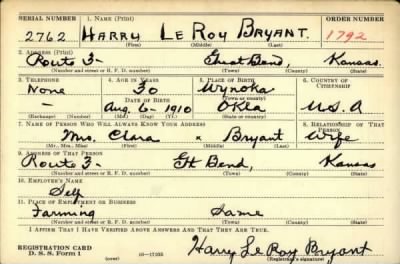 SERIAL NUMBER 1. NAME (Print) ORDER NUMBER
2762 HARRY LE ROY BRYANT. 1792
(First) (Middle) (Last)
2. ADDRESS (Print)
Route 3- Great Bend, Kansas.
(Number and street or R. F. D. number) (Town) (County) (State)
3. TELEPHONE 4. AGE IN YEARS 5. PLACE OF BIRTH 6. COUNTRY OF CITIZENSHIP
None 30 Wynoka
DATE OF BIRTH (Town or county)
- Aug. 6- 1910 Okla U.S.A
(Exchange) (Number) (Mo.) (Day) (Yr.) (State or country)
7. NAME OF PERSON WHO WILL ALWAYS KNOW YOUR ADDRESS 8. RELATIONSHIP OF THAT PERSON
Mrs. Clara x Bryant Wife
(Mr., Mrs., Miss) (First) (Middle) (Last)
9. ADDRESS OF THAT PERSON
Route 3- Gt Bend, Kansas
(Number and street or R. F. D. number) (Town) (County) (State)
10. EMPLOYER'S NAME
Self
11. PLACE OF EMPLOYMENT OR BUSINESS
Farming Same
(Number and street or R. F. D. number) (Town) (County) (State)
I AFFIRM THAT I HAVE VERIFIED ABOVE ANSWERS AND THAT THEY ARE TRUE.
REGISTRATION CARD
D. S. S. Form 1 (over) 16-17105 Harry Le Roy Bryant
(Registrant's signature)